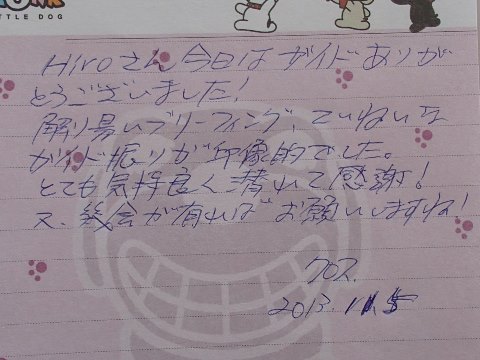 TTLE DOG
Hiroさん今日はガイドありが
とうございました!
解り易いブリーフィング、ていねいな
ガイド振りが印象的でした。
とても気持良く潜れて感謝!
又、機会が有ればお願いしますね!
クロス.
2013.11.5